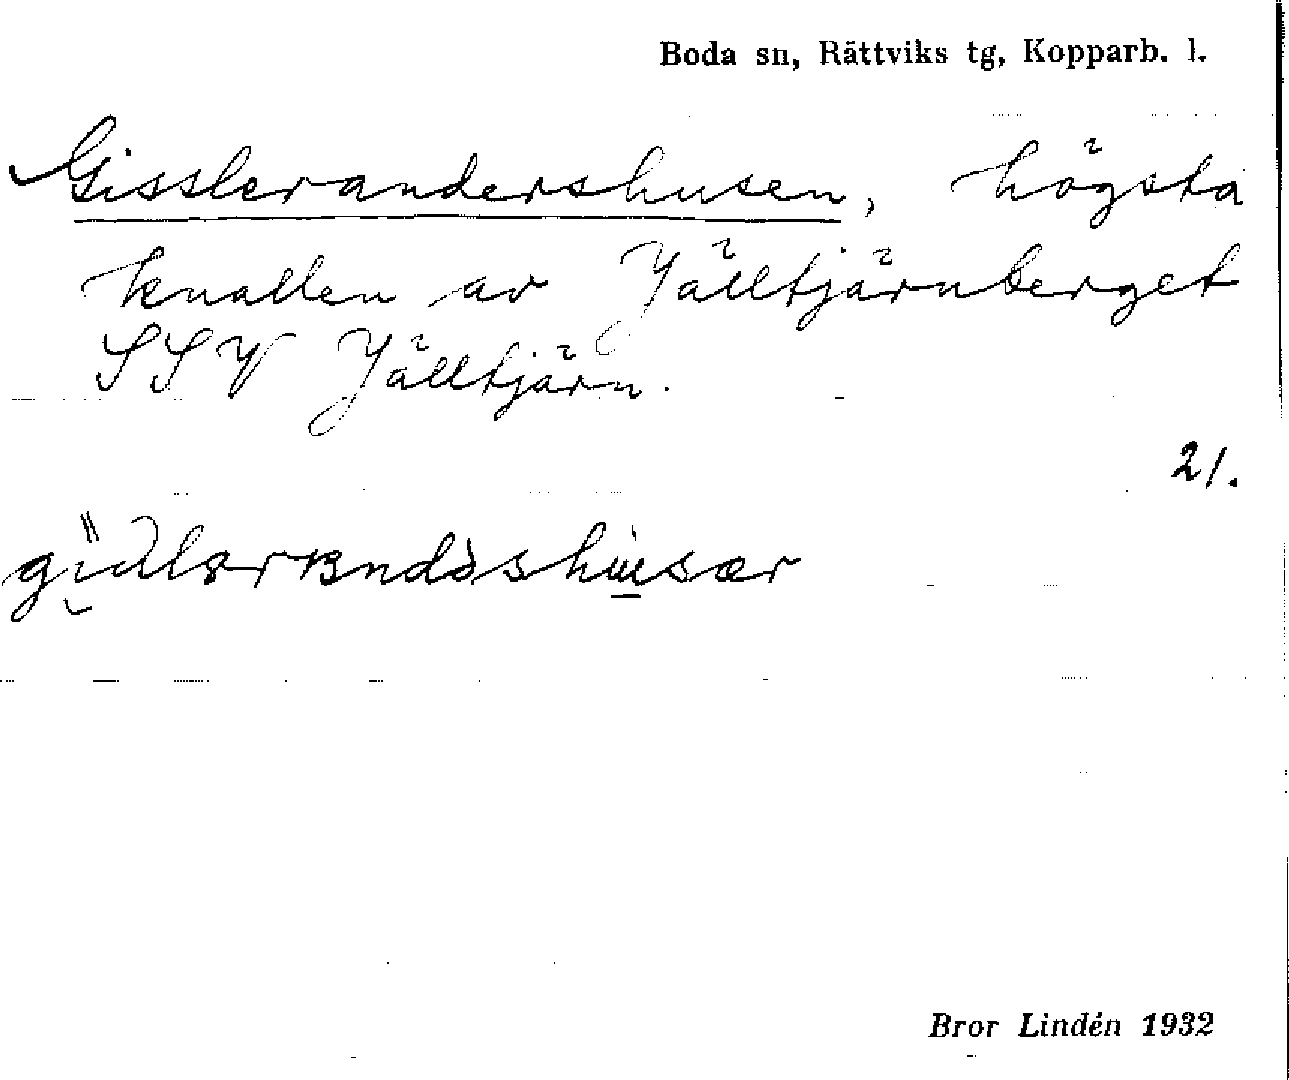 Boda sn, Rättviks tg, Kopparb. l.
Gisslerandershusen, högsta
knallen av Jälltjärnberget
SSV Jälltjärn.
21.
Bror Lindén 1932